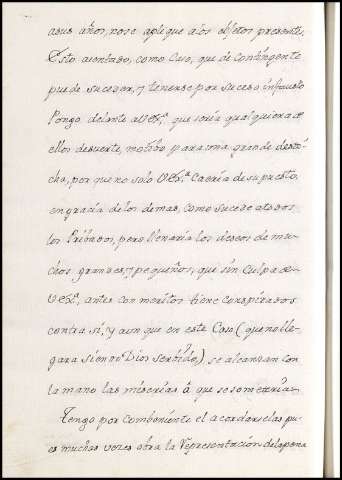 años, no se aplique a los objetos presente,
Esto acentado, como Caso, que de Contingente
puede suceder, y tenerse por suceso infausto
Pongo delante a VEx.ª que seria qualquiera de
ellos de suerte, motivo para una grande desdi
cha, por que no solo VEx.ª Caeria de su puesto,
en gracia de los demas, como sucede a todos
los Pribados, pero llenaria los deseos de mu
chos grandes, y pequeños, que sin culpa de
VEx.ª, antes con meritos tiene conspirados
contra si, y aun que en este Caso (que no lle
gara siendo Dios serbido), se alcanzan con
la mano las miserias a que se someteria
Tengo por combeniente el acordarselas pu
es muchas veces obra la Representacion de la pena